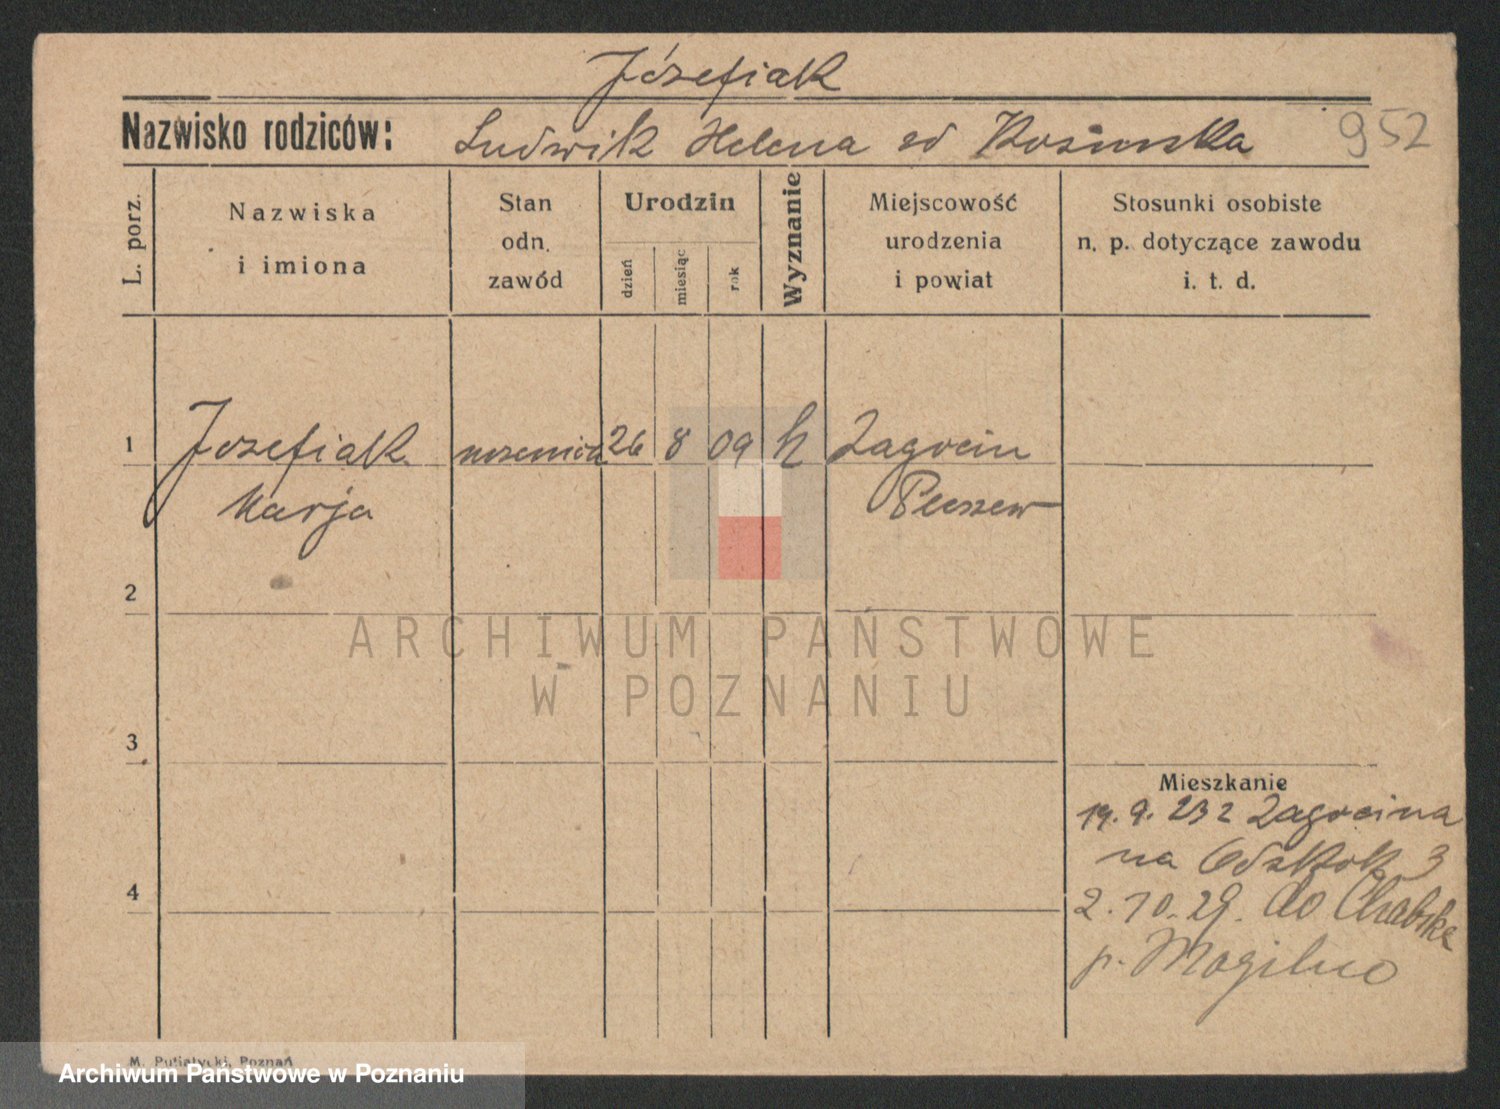 Józefiak
Nazwisko rodziców: Ludwik Helena zd 952
L. porz.
Nazwiska
i imiona
Stan
odn.
zawód
Urodzin
dzień
miesiąc
rok
Wyznanie
Miejscowość
urodzenia
i powiat
Stosunki osobiste
n. p. dotyczące zawodu
i. t. d.
1 Jozefiak 26 8 09 Zagorcin
Marja Pleszew
2
ARCHIWUM PAŃSTWOWE
W POZNANIU
3
Mieszkanie
19. 9. z Zagorcina
na 3
4
2. 10. 29. do Chabska
p. Mogilno
M. Putiatycki, Poznań
Archiwum Państwowe w Poznaniu